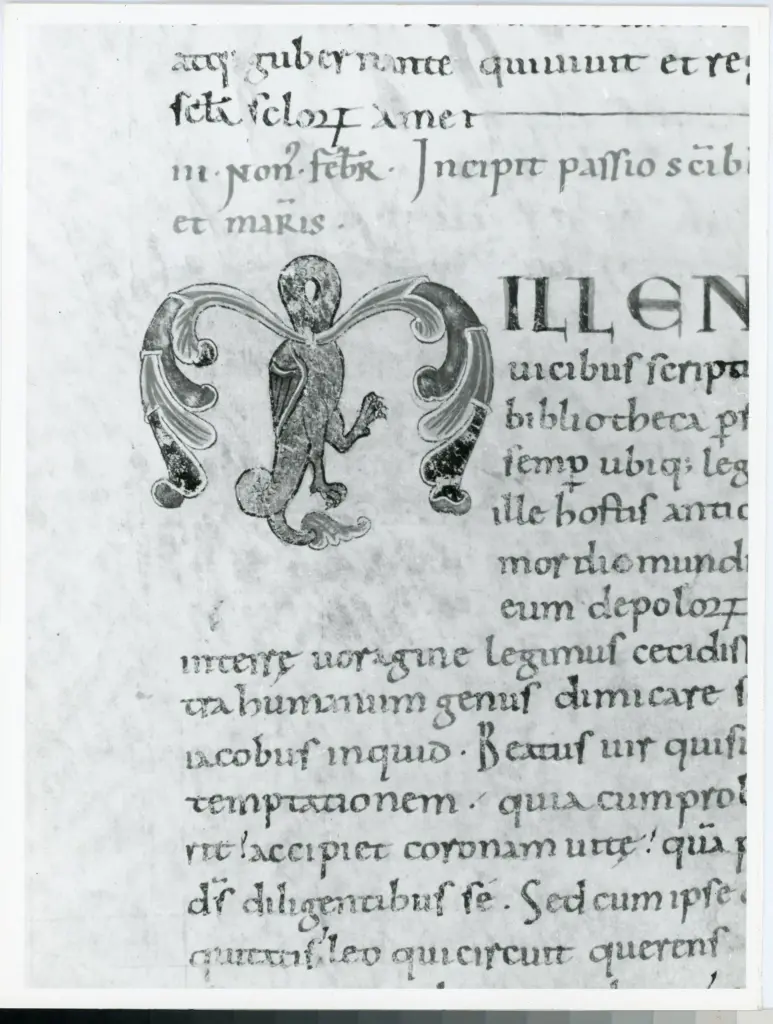 atq; gubernante quiuiuit et re
scła scloꝝ Amen
iii. Non. febr. Incipit passio sci bl
et maris.
MILLEN
uicibus script
bibliotheca p
semp ubiq; leg
ille hostis antiq
mordio mundi
eum de poloꝝ
in terrę uoragine legimus cecidis
tra humanum genus dimicare s
iacobus inquid. Beatus uir qui suf
temptationem. quia cum prob
rit accipiet coronam uitę quā
ds diligentibus se. Sed cum ipse
quietatis leo qui circuit querens